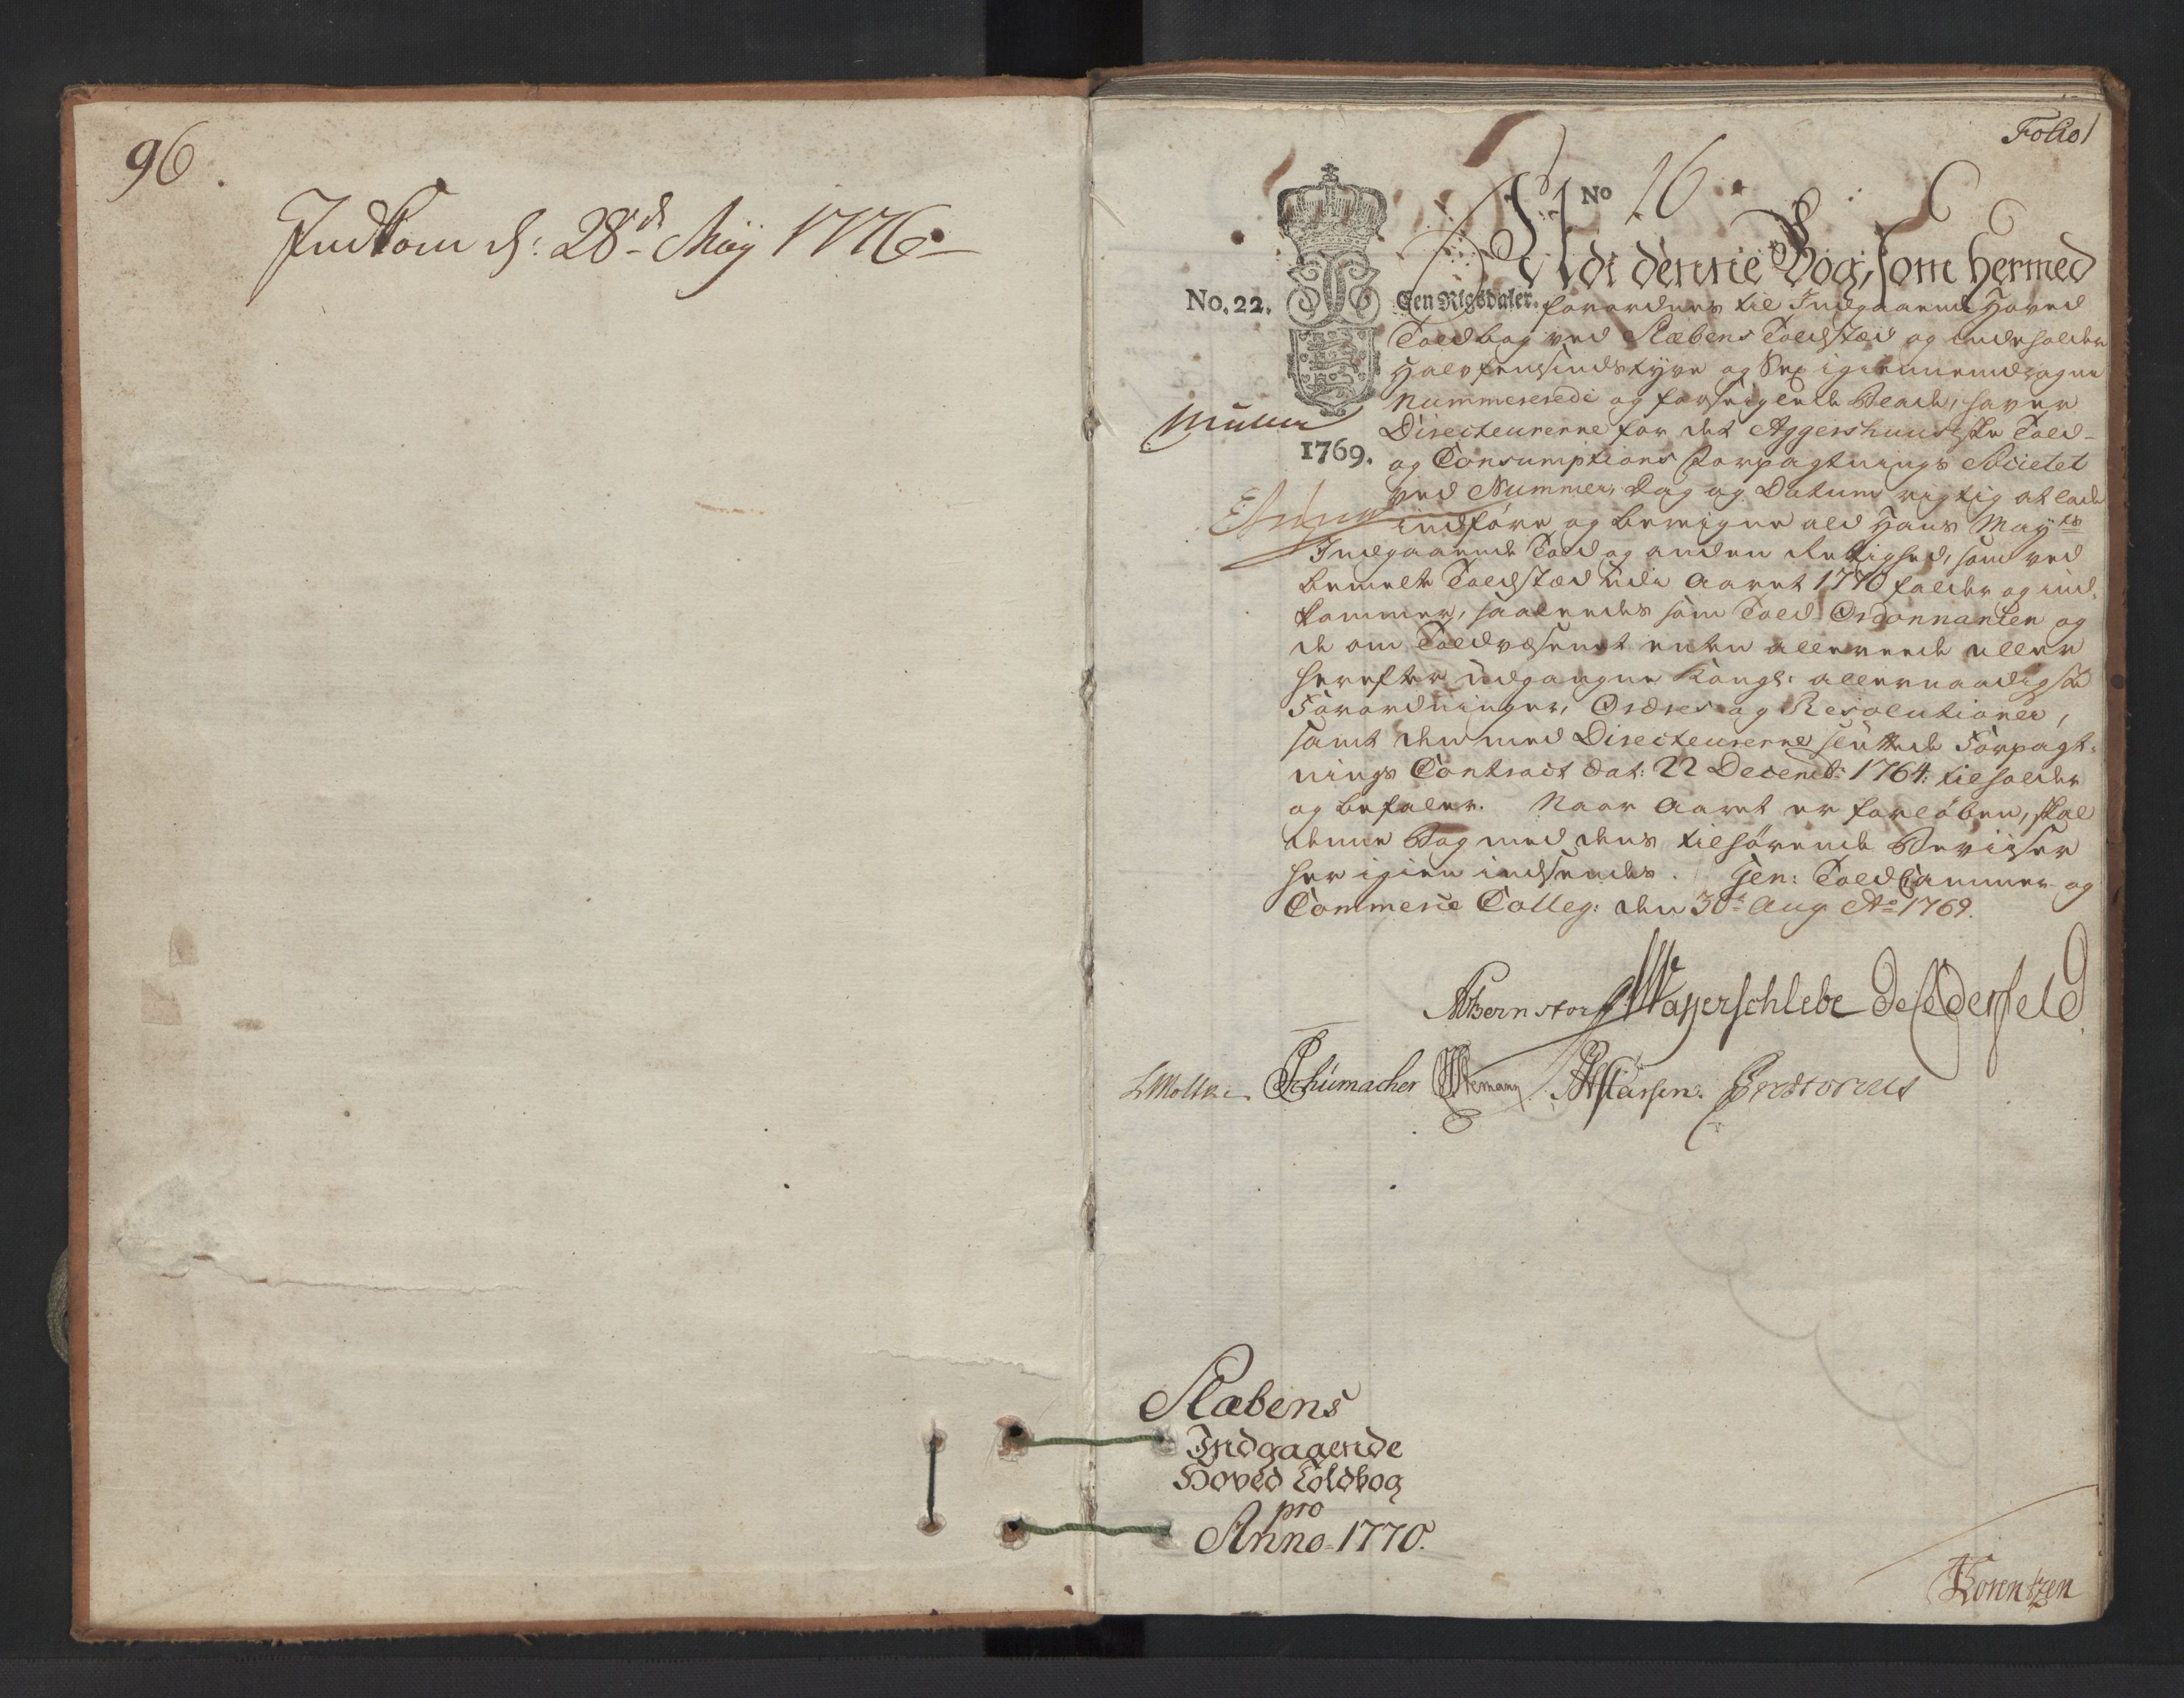 96.
Indkom d: 28de May 1776
Folio 1
No 16
Udi denne Bog, som hermed
No. 22. Een Rigsdaler. forordnes til Indgaaende Hoved
Toldbog ved Slæbens Toldstæd og indeholder
Halvfemsindstyve og Sex igiennemdragne
Nummererede og forseiglede Blade, haver
Müller
Directeurerne for det Aggershuusiske Told-
1769.
og Consumptions Forpagtnings Societet
ved Nummer, Dag og Datum rigtig at lade
indføre og beregne ald Hans Mayts
Indgaaende Told og anden Rettighed, som ved
bemelte Toldstæd udi Aaret 1770 falder og ind-
kommer, saaledes som Told-Ordonnantzen og
de om Toldvæsenet enten allereede eller
herefter udgangne Kongl: allernaadigste
Forordninger, Ordres og Resolutioner,
samt den med Directeurerne sluttede Forpagt-
nings Contract dat: 22 Decemb: 1764: tilholder
og befaler. Naar Aaret er forløben, skal
denne Bog med dens tilhørende Beviiser
her igien indsendes. Gen: Told Cammer og
Commerce Colleg: den 30te Aug Ao 1769.
Bernstorff Wayerschlebe de Cederfeld
LMoltke Schumacher Clasen. Prætorius
Slæbens
Indgaaende
Hoved Toldbog
pro
Anno 1770.
Lorentzen